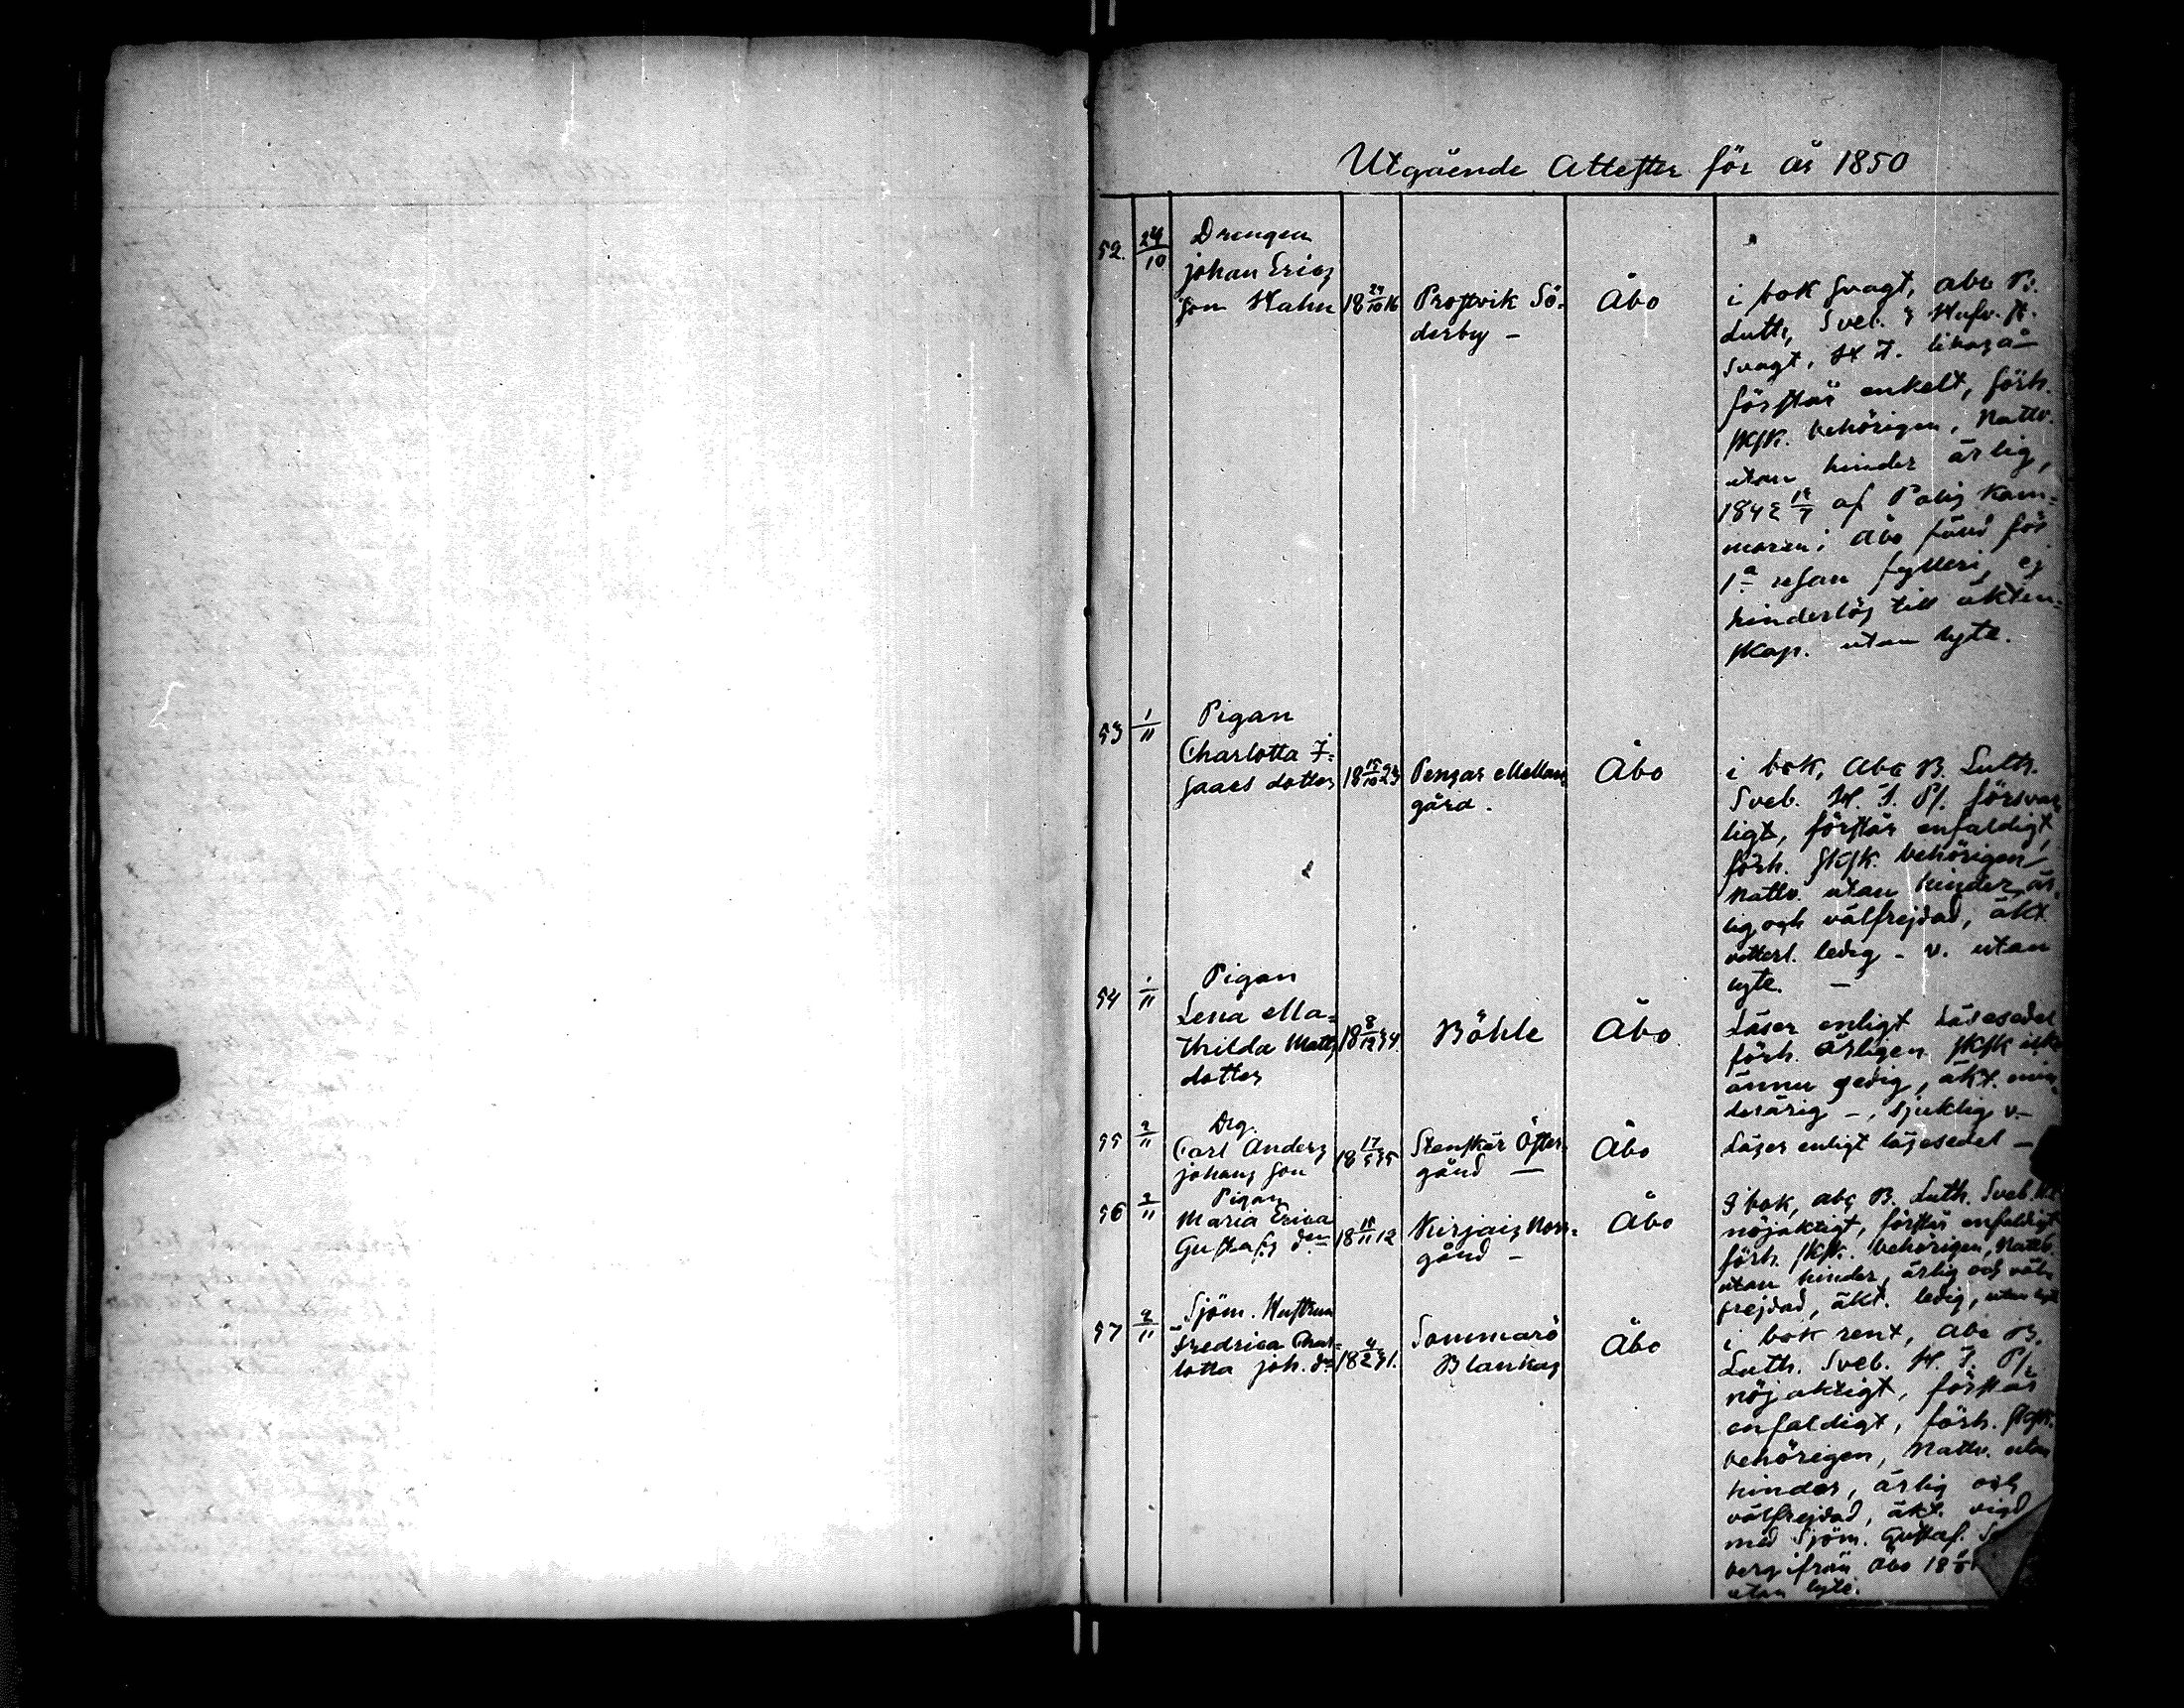 Utgående Attester för år 1850
52. 24/10
Drengen
Johan Erics
son Hahn
18 24/10 16
Prostvik Sö-
derby –
Åbo
i bok svagt, abc B.
Luth. Sveb. Hufv. st.
svagt, H T. likaså
förstår enkelt, förh.
sksk. behörigen, Nattv.
utan hinder ärlig,
184 af Polis Kam-
maren i Åbo för
1a resan fylleri, ej
hinderlös till äkten-
skap. utan lyte.
53 1/11
Pigan
Charlotta I-
saacs dotter
18 15/10 23
Pensar Mellan
gård.
Åbo
i bok, Abc B. Luth.
Sveb. H. T. Ps. försvar
ligt, förstår enfaldigt,
förh. sksk. behörigen
nattv. utan hinder, är
lig och välfrejdad, äkt.
vitterl. ledig – v. utan
lyte. –
54 1/11
Pigan
Lena Ma-
thilda Matts
dotter
18 8/12 34.
Böhle
Åbo
Läser enligt Läsesedel
förh. årligen sksk icke
ännu gedig, äkt. min
derårig –, sjuklig v.–
55 2/11
Drg.
Carl Anders
Johans son
18 17/5 35
Stenskär Öster-
gård –
Åbo
Läser enligt läsesedel –
56 2/11
Pigan
Maria Erica
Gustafs dr
18 11 12
Kirjais Norr-
gård –
Åbo
I bok, abc B. Luth. Sveb.
nöjaktigt, förstår enfaldigt
förh. sksk. behörigen, Nattv.
utan hinder, ärlig och väl-
frejdad, äkt. ledig, utan lyte
57 2/11
Sjöm. Hustrun
Fredrica Char-
lotta Joh. dr
18 4/2 31.
Sommarö
Blankas
Åbo
i bok rent, Abc B.
Luth. Sveb. H. T. Ps
nöjaktigt, förstår
enfaldigt, förh. sksk.
behörigen, Nattv. utan
hinder, ärlig och
välfrejdad, äkt. vigd
med Sjöm. Gustaf. S
berg ifrån Åbo 18
utan lyte.